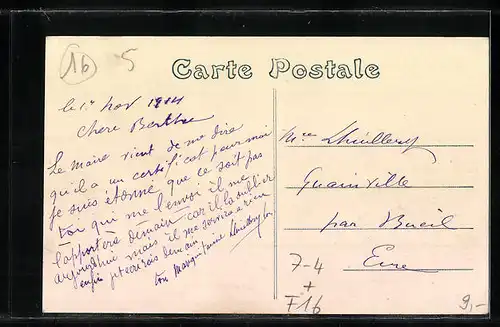 16
5
Carte Postale
le 1er nov 1914
Chère Berthe
Le maire vient de me dire
qu'il a un certificat pour moi
je suis étonné que ce soit pas
toi qui me l'envoi il me
l'apportera demain car il l'a oublié
aujourd'hui mais il me servira à rien
enfin je t'écrirais demain
ton
Mme
Guainville
par Bueil
Eure
7-4
+
F16
9,-